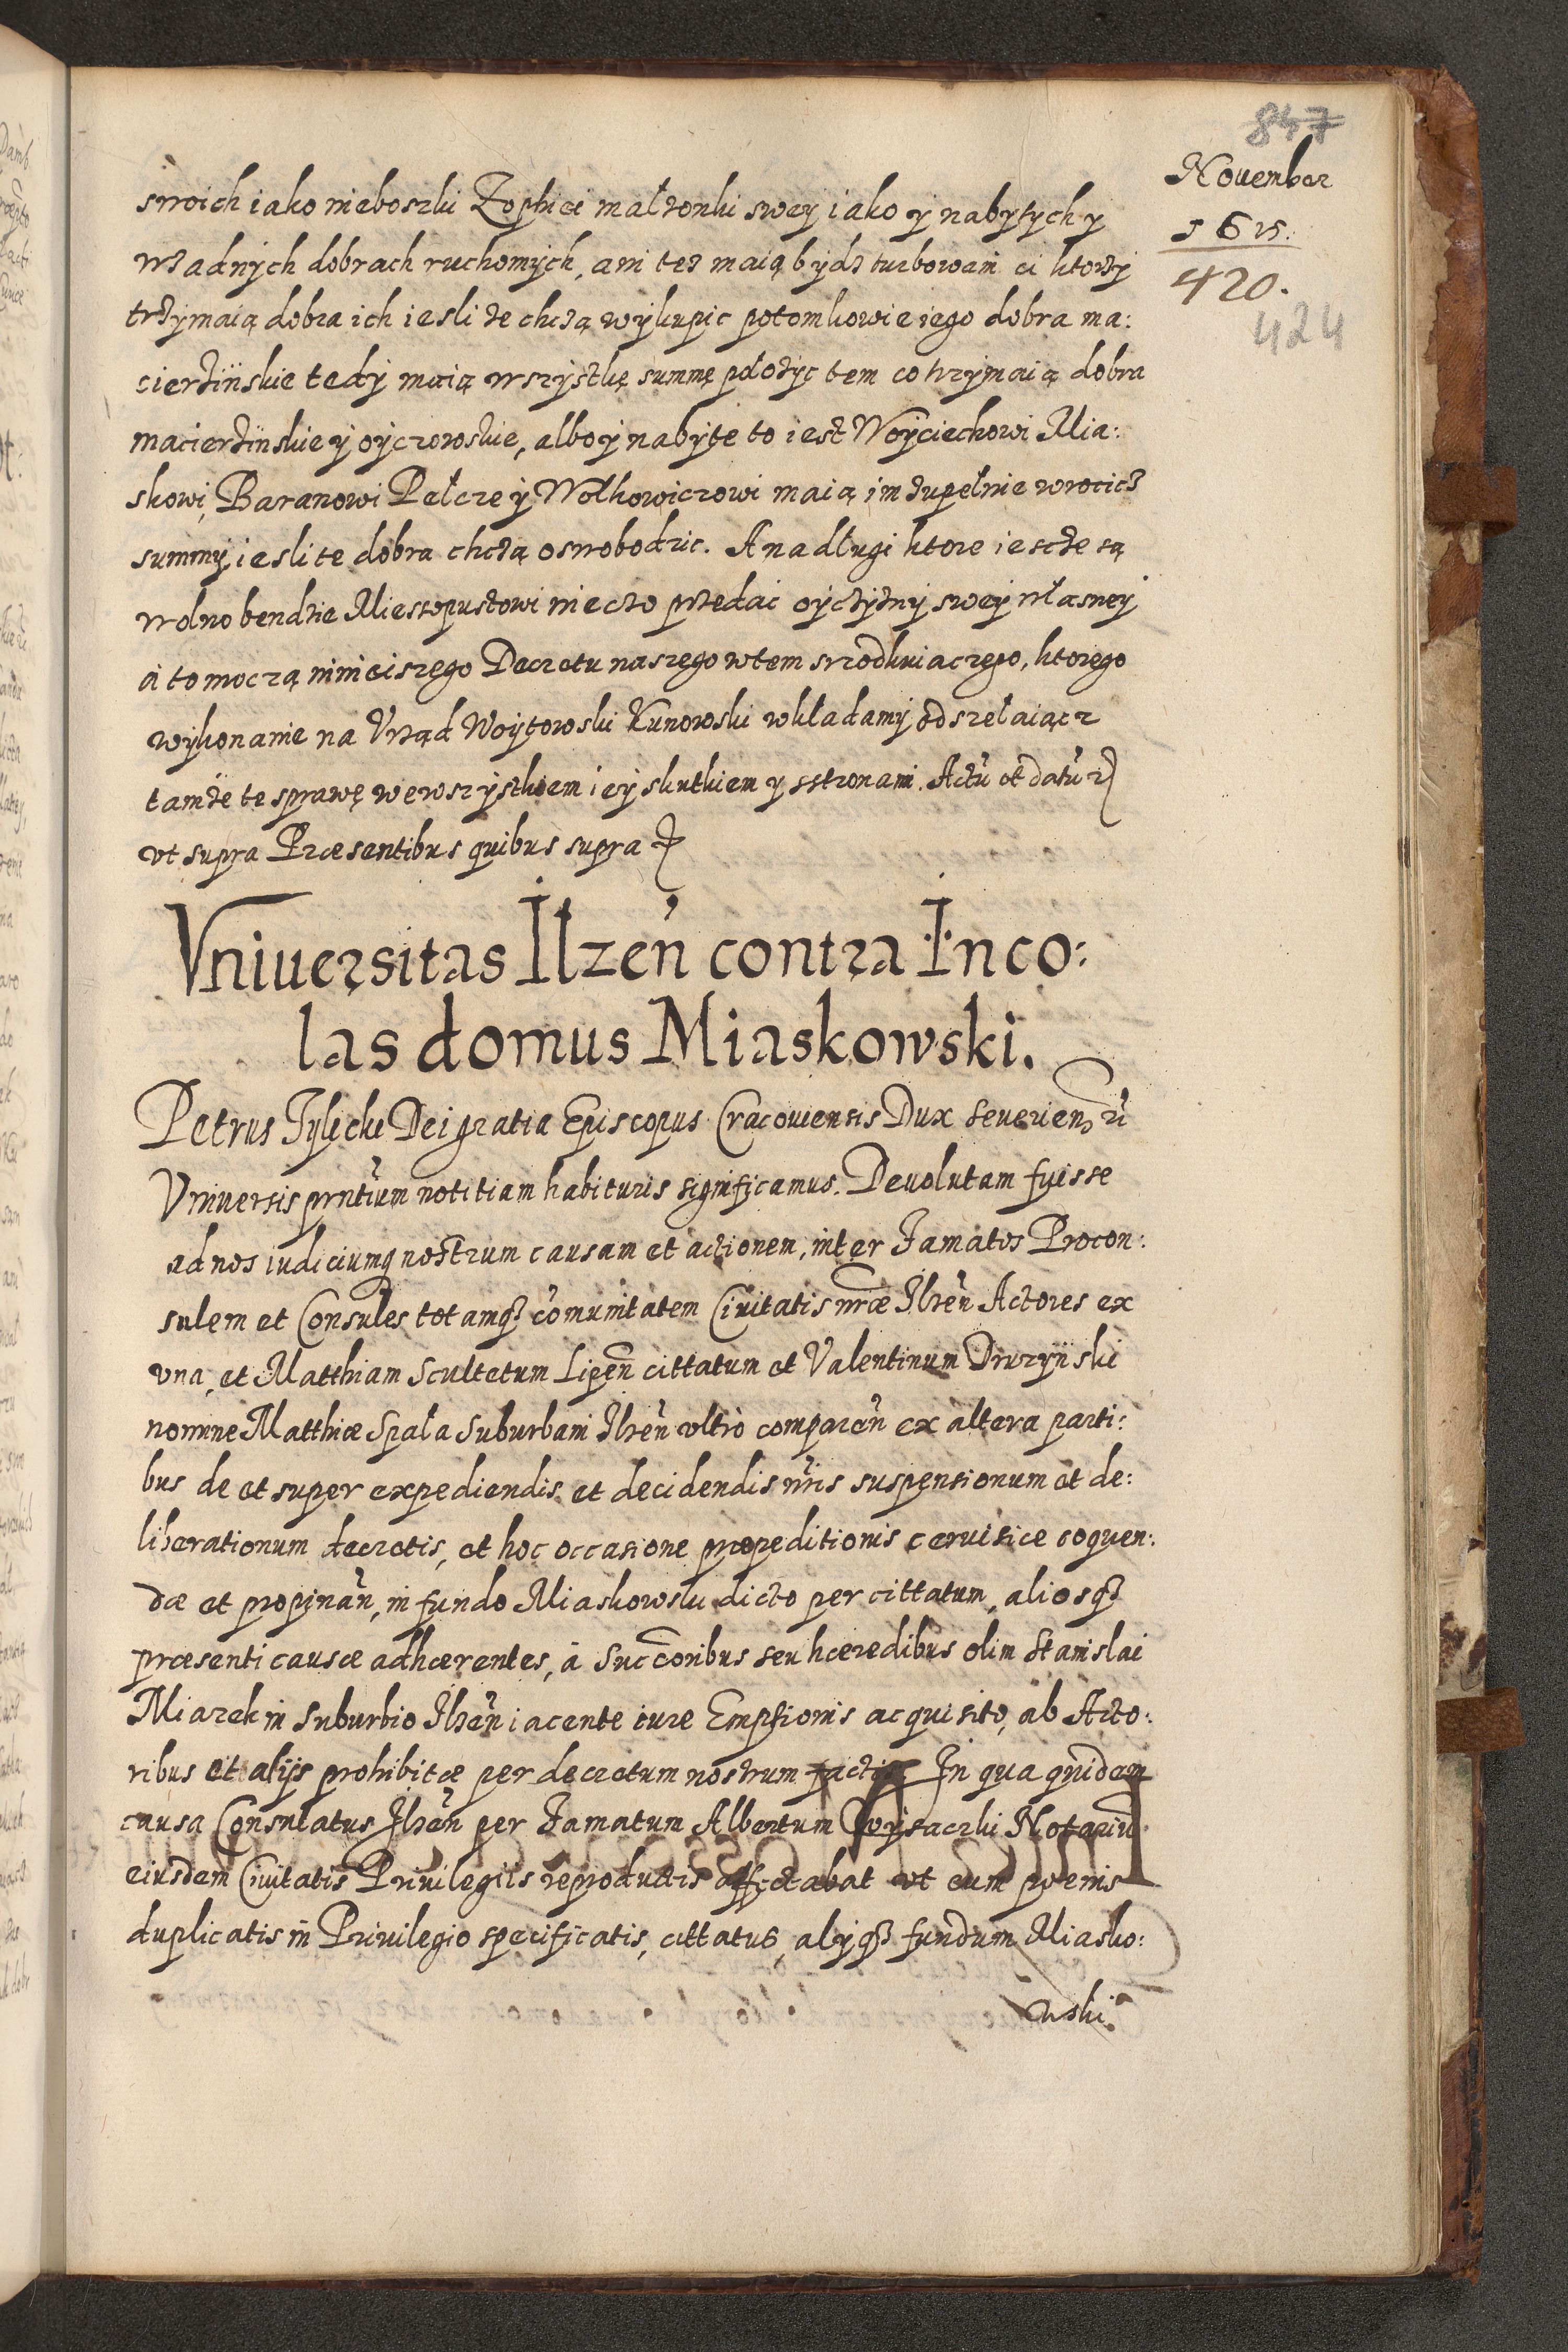 847
Nouember
1615.
420.
424
swoich iako nieboszki Zophiei małzonki swey iako ÿ nabytych ÿ
wzadnÿch dobrach ruchomÿch, ani tez maią bÿdz turbowani ci ktorzÿ
trzÿmaią dobra ich iesli ze chczą wÿkupic potomkowie iego dobra ma:
cierzÿnskie tedÿ maią wszÿstkę summę położÿc tem co trzymaią dobra
macierzÿnskie ÿ oÿczowskie, albo ÿ nabÿte to iest Woÿciechowi Mia:
skowi, Baranowi Pełcze ÿ Wołkowiczowi maią im zupełnie wrocicz
summÿ iesli te dobra chczą oswobodzic. A na długi ktore iescze są
wolno bendzie Miesopustowi nieczo przedac oÿczÿznÿ sweÿ własneÿ
a to moczą ninieiszego Decretu naszego wtem srzodkuiaczego, ktorego
wÿkonanie na Vrząd Woÿtowski Kunowski wkładamÿ odszełaiącz
tamze te sprawę wewszÿstkiem ieÿ skutkiem ÿ sstronami. Actũ et datũ
vt supra Præsentibus quibus supra
Vniuersitas Ilzeń contra Inco:
las domus Miaskowski.
Petrus Tÿlicki Dei gratia Episcopus Cracouiensis Dux Seuerien̄
Vniuersis prñtium notitiam habituris significamus. Deuolutam fuisse
ad nos iudiciumq nostrum causam et actionem, inter Famatos Procon:
sulem et Consules totamqꝫ cõmunitatem Ciuitatis nr̃æ Ilzeñ Actores ex
vna, et Matthiam Scultetum Lipeñ cittatum et Valentinum Druzÿnski
nomine Matthiæ Spała Suburbani Ilzeñ vltro comparen̄ ex altera parti:
bus de et super expediendis et decidendis nr̃is suspensionum et de:
liberationum decretis, et hoc occasione præpeditionis ceruisiæ coquen:
dæ et propinañ, in fundo Miaskowski dicto per cittatum, aliosqꝫ
præsenti causæ adhærentes, à Succ̃oribus seu hæredibus olim Stanislai
Miazek in suburbio Ilzeñ iacente iure Emptionis acquisito, ab Acto:
ribus et alijs prohibitæ per decretum nostrum factis. In qua quidem
causa Consulatus Ilzeñ per Famatum Albertum Notariũ
eiusdem Ciuitatis Priuilegijs reproductis affectabat vt eum poenis
duplicatis in Priuilegio specificatis, cittatus, alÿqꝫ fundum Miasko:
wski